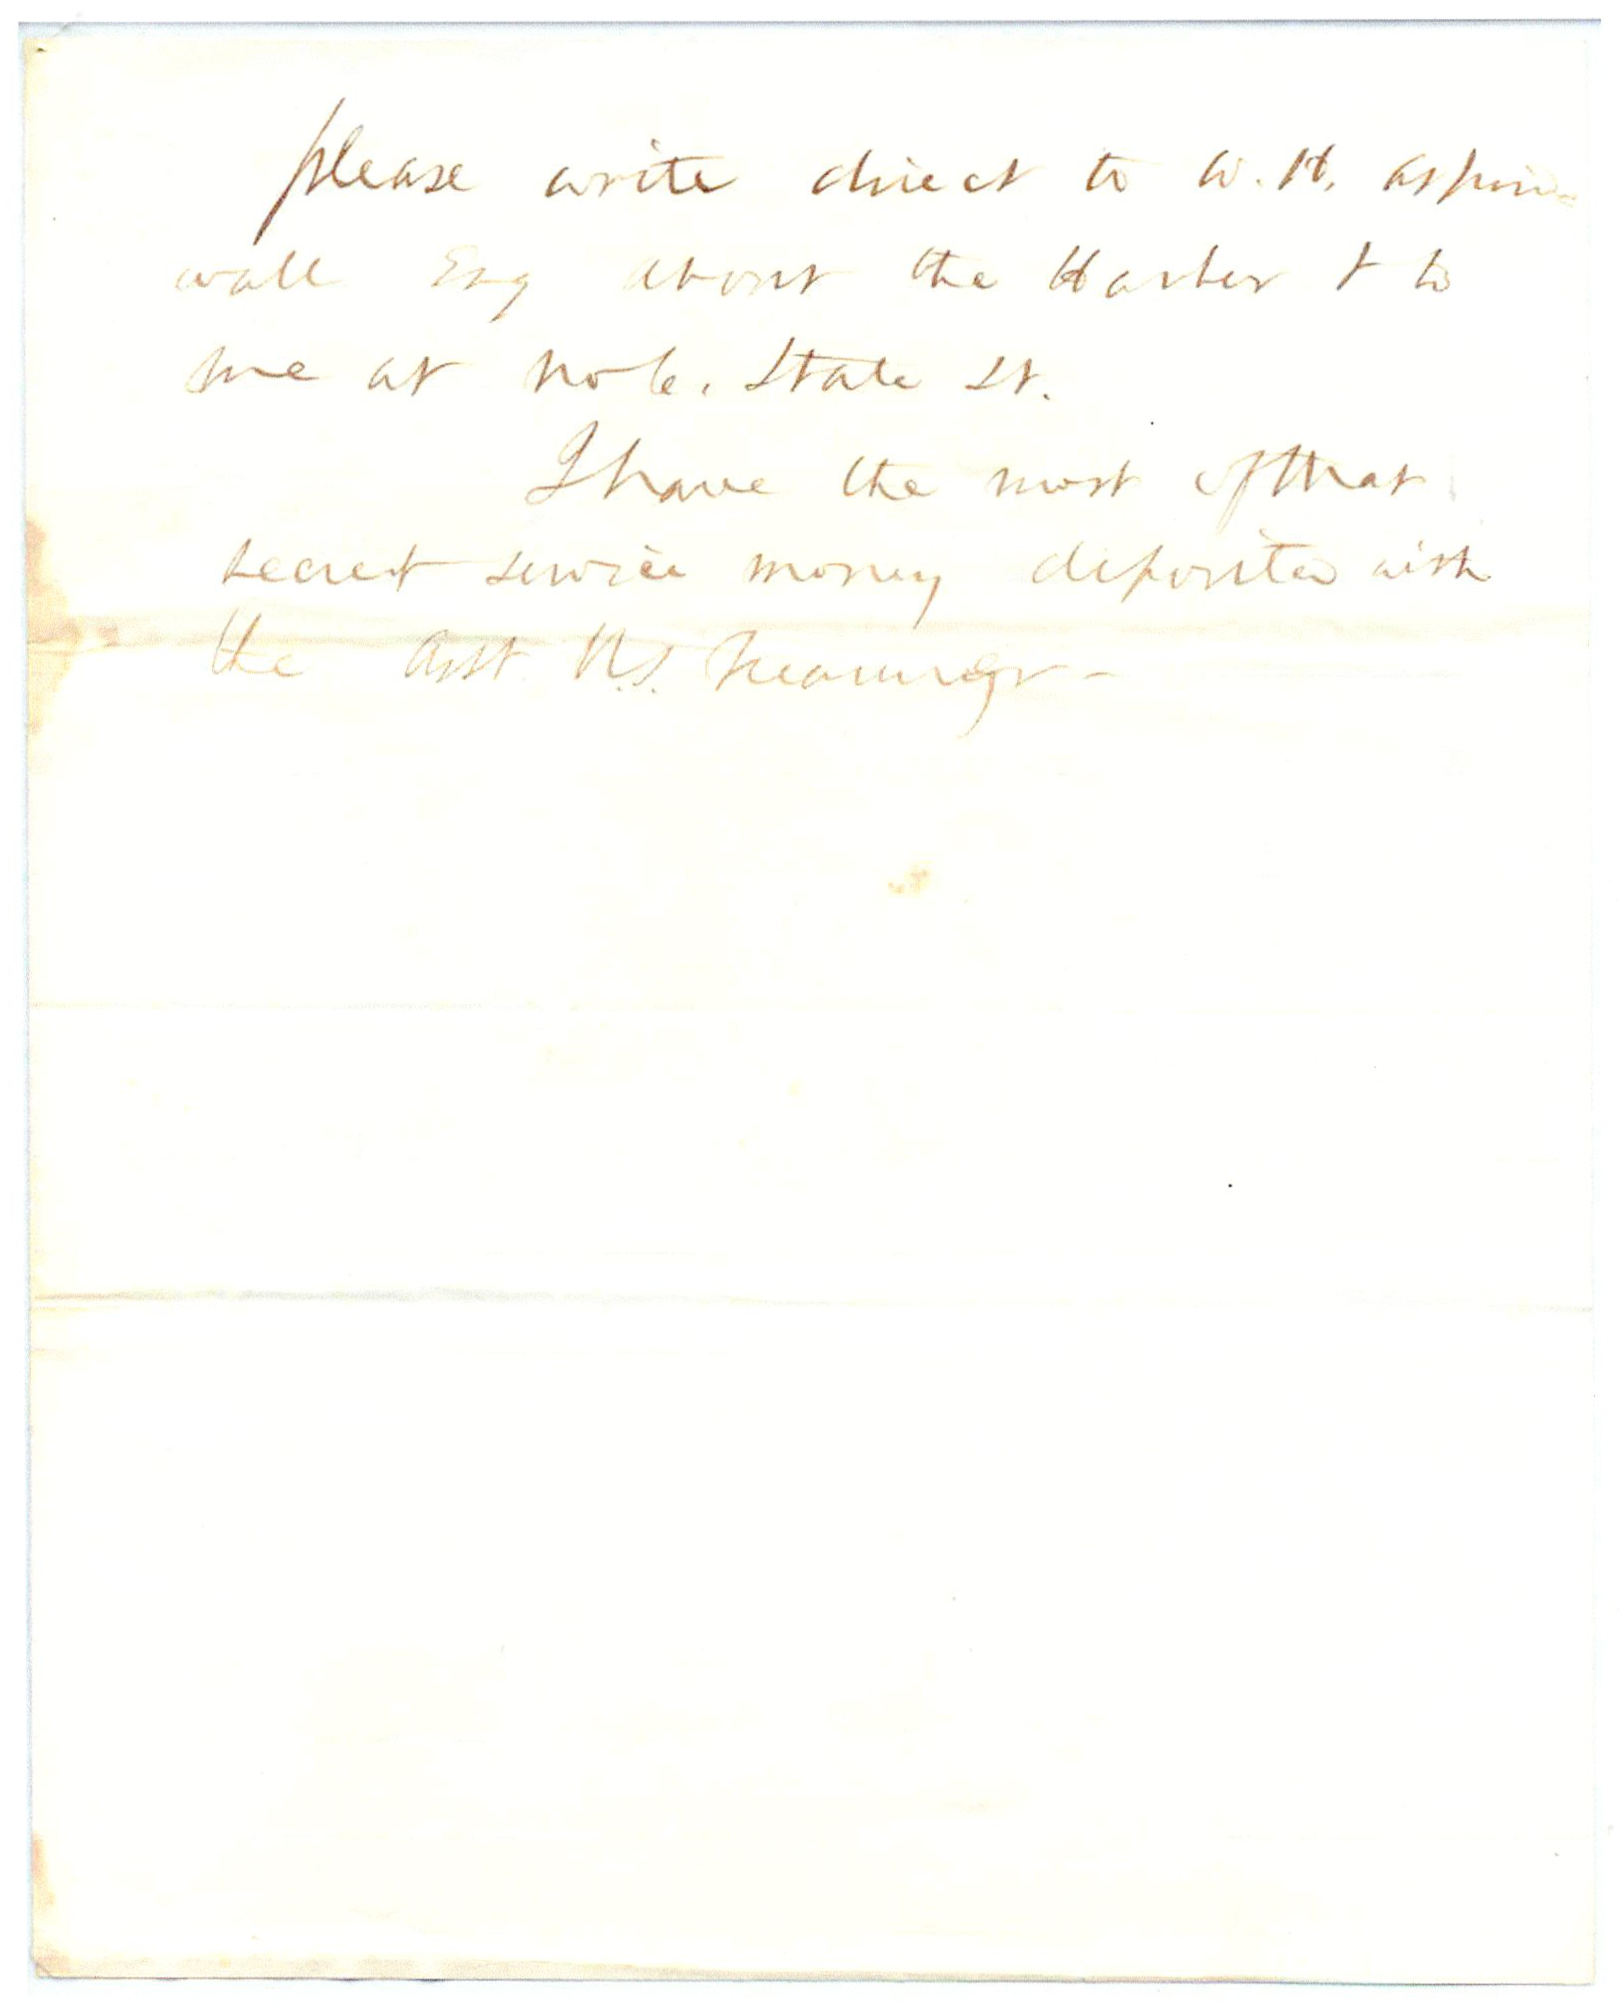 please write direct to W. H. Aspin-
wall Esq about the Harbor & to
me at No 6. State St.
I have the most of that
secret service money deposited with
the Asst. U.S. Treasurer -